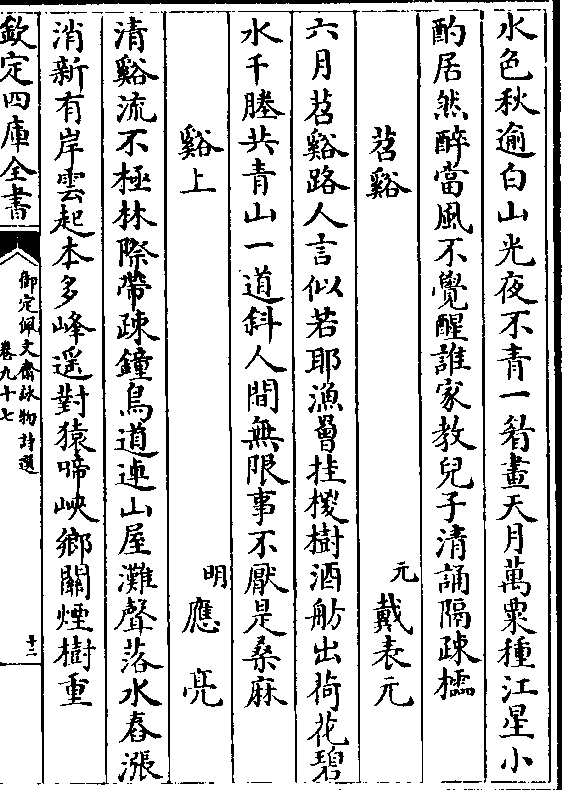 水色秋逾白山光夜不青一豀畫天月萬粟種江星小
酌居然醉當風不覺醒誰家教兒子清誦隔疎櫺
苕谿 元 戴表元
六月苕谿路人言似若耶漁罾挂椶樹酒舫出荷花碧
水千塍共青山一道斜人間無限事不厭是桑麻
谿上 明 應亮
清谿流不極林際帶疎鐘鳥道連山屋灘聲落水舂漲
消新有岸雲起本多峰遥對猿啼峽鄉關煙樹重
欽定四庫全書
御定佩文齋詠物詩選
卷九十七
十二